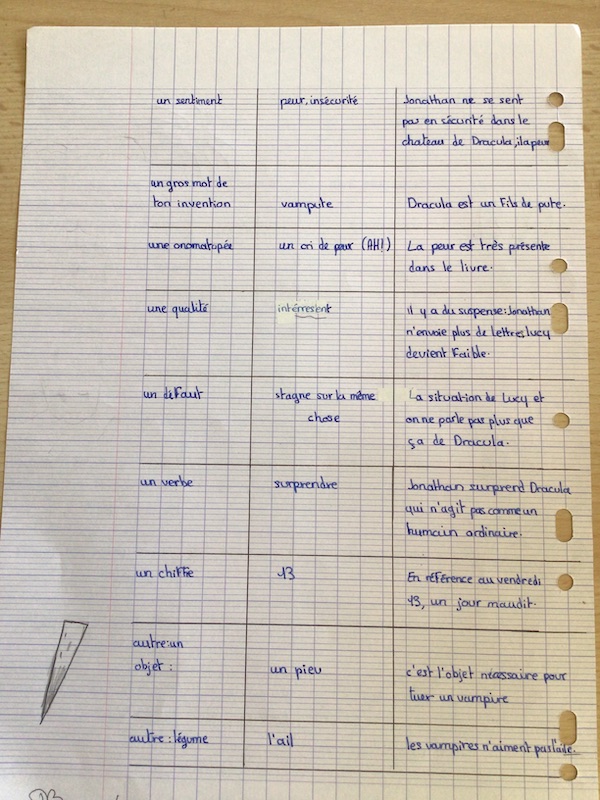 un sentiment peur, insécurité Jonathan ne se sent
pas en sécurité dans le
chateau de Dracula, il a peur
un gros mot de
ton invention vampute Dracula est un fils de pute.
une onomatopée un cri de peur (AH!) La peur est très présente
dans le livre.
une qualité intérresent il y a du suspense: Jonathan
n'envoie plus de lettres, Lucy
devient faible.
un défaut stagne sur la même La situation de Lucy et
chose on ne parle pas plus que
ça de Dracula.
un verbe surprendre Jonathan surprend Dracula
qui n'agit pas comme un
humain ordinaire.
un chiffre 13 En référence au vendredi
13, un jour maudit.
autre: un
objet: un pieu c'est l'objet nécessaire pour
tuer un vampire
autre: légume l'ail les vampires n'aiment pas l'aile.